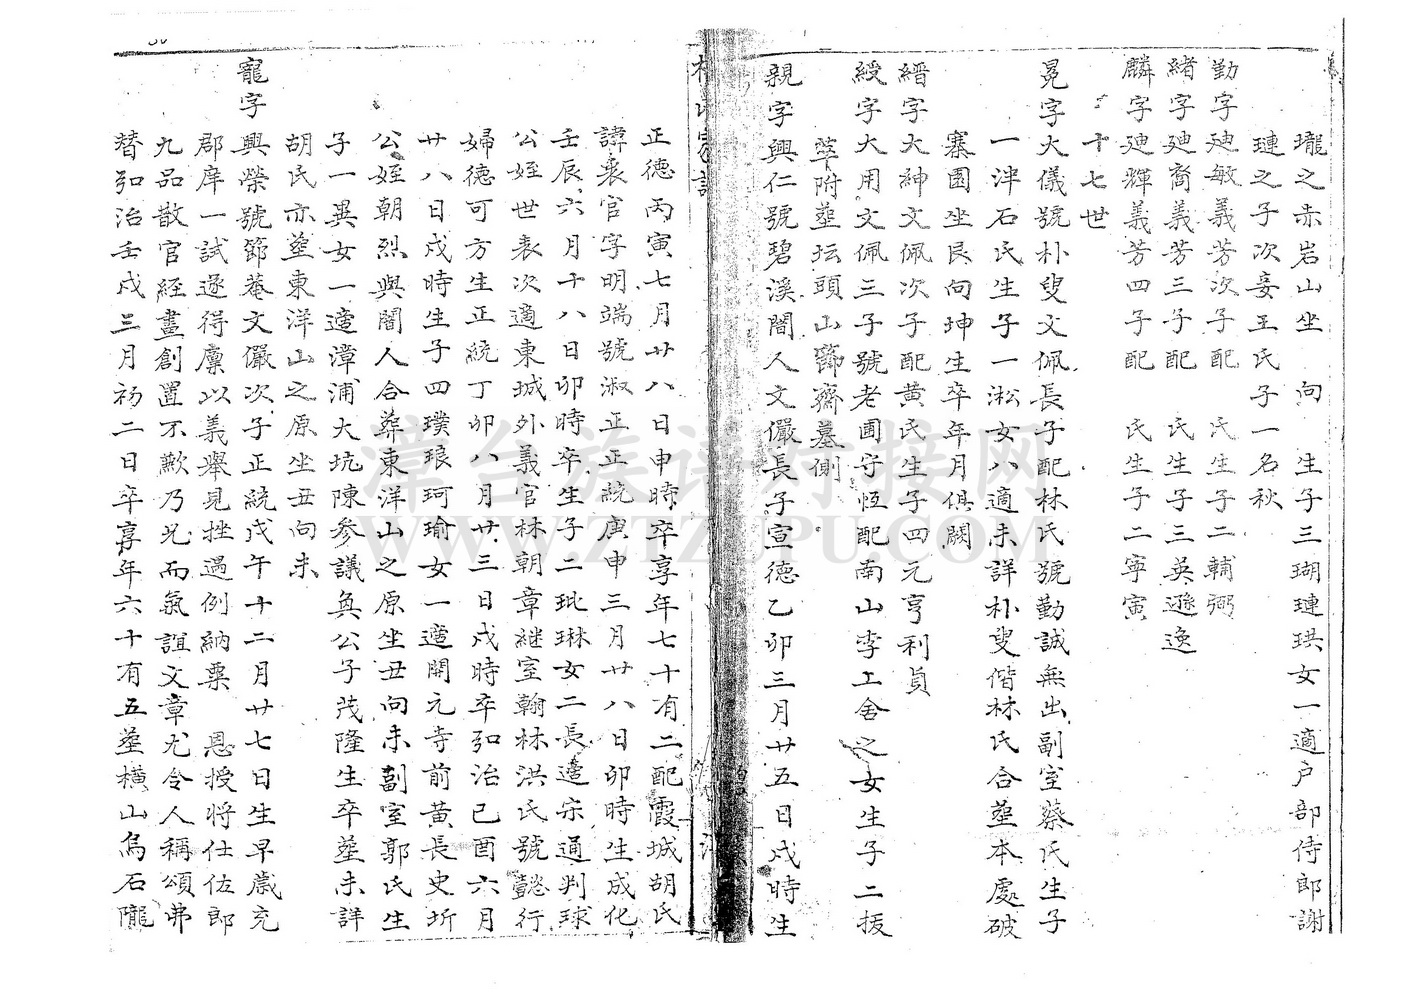 瓏之赤岩山坐　向　生子三瑚璉珙女一適户部侍郎謝
璉之子次妾王氏子一名秋
勤字廸敏義芳次子配　氏生子二輔弼
緒字廸裔義芳三子配　氏生子三英遜逸
麟字廸輝義芳四子配　氏生子二寧寅
十七世
冕字大儀號朴叟文佩長子配林氏號勤誠無出副室蔡氏生子
一泮石氏生子一淞女八適未詳朴叟偕林氏合塟本處破
寨園坐艮向坤生卒年月俱闕
縉字大紳文佩次子配黄氏生子四元亨利貞
綬字大用文佩三子號老圃守恆配南山李工舍之女生子二振
萃附塟坛頭山齋墓側
親字興仁號碧溪闇人文儼長子宣德乙卯三月廿五日戌時生
正德丙寅七月廿八日申時卒享年七十有二配霞城胡氏
諱裘官字明端號淑正正統庚申三月廿八日卯時生成化
壬辰六月十八日卯時卒生子二玭琳女二長適宋通判球
公姪世表次適東城外義官林朝章継室翰林洪氏號懿行
婦德可方生正統丁卯八月廿三日戌時卒弘治己酉六月
廿八日戌時生子四璞琅珂瑜女一適開元寺前黄長史圻
公姪朝烈與闇人合葬東洋山之原坐丑向未副室郭氏生
子一異女一適漳浦大坑陳參議奐公子茂隆生卒塟未詳
胡氏亦塟東洋山之原坐丑向未
寵字興榮號節菴文儼次子正統戊午十二月廿七日生早歳充
郡庠一試遂得廪以義舉見挫遇例納粟　恩授将仕佐郎
九品散官經畫創置不歉乃兄而氣誼文章尤令人稱頌弗
替弘治壬戌三月初二日卒享年六十有五塟横山烏石隴
漳台族谱对接网
WWW.ZTZUPU.COM